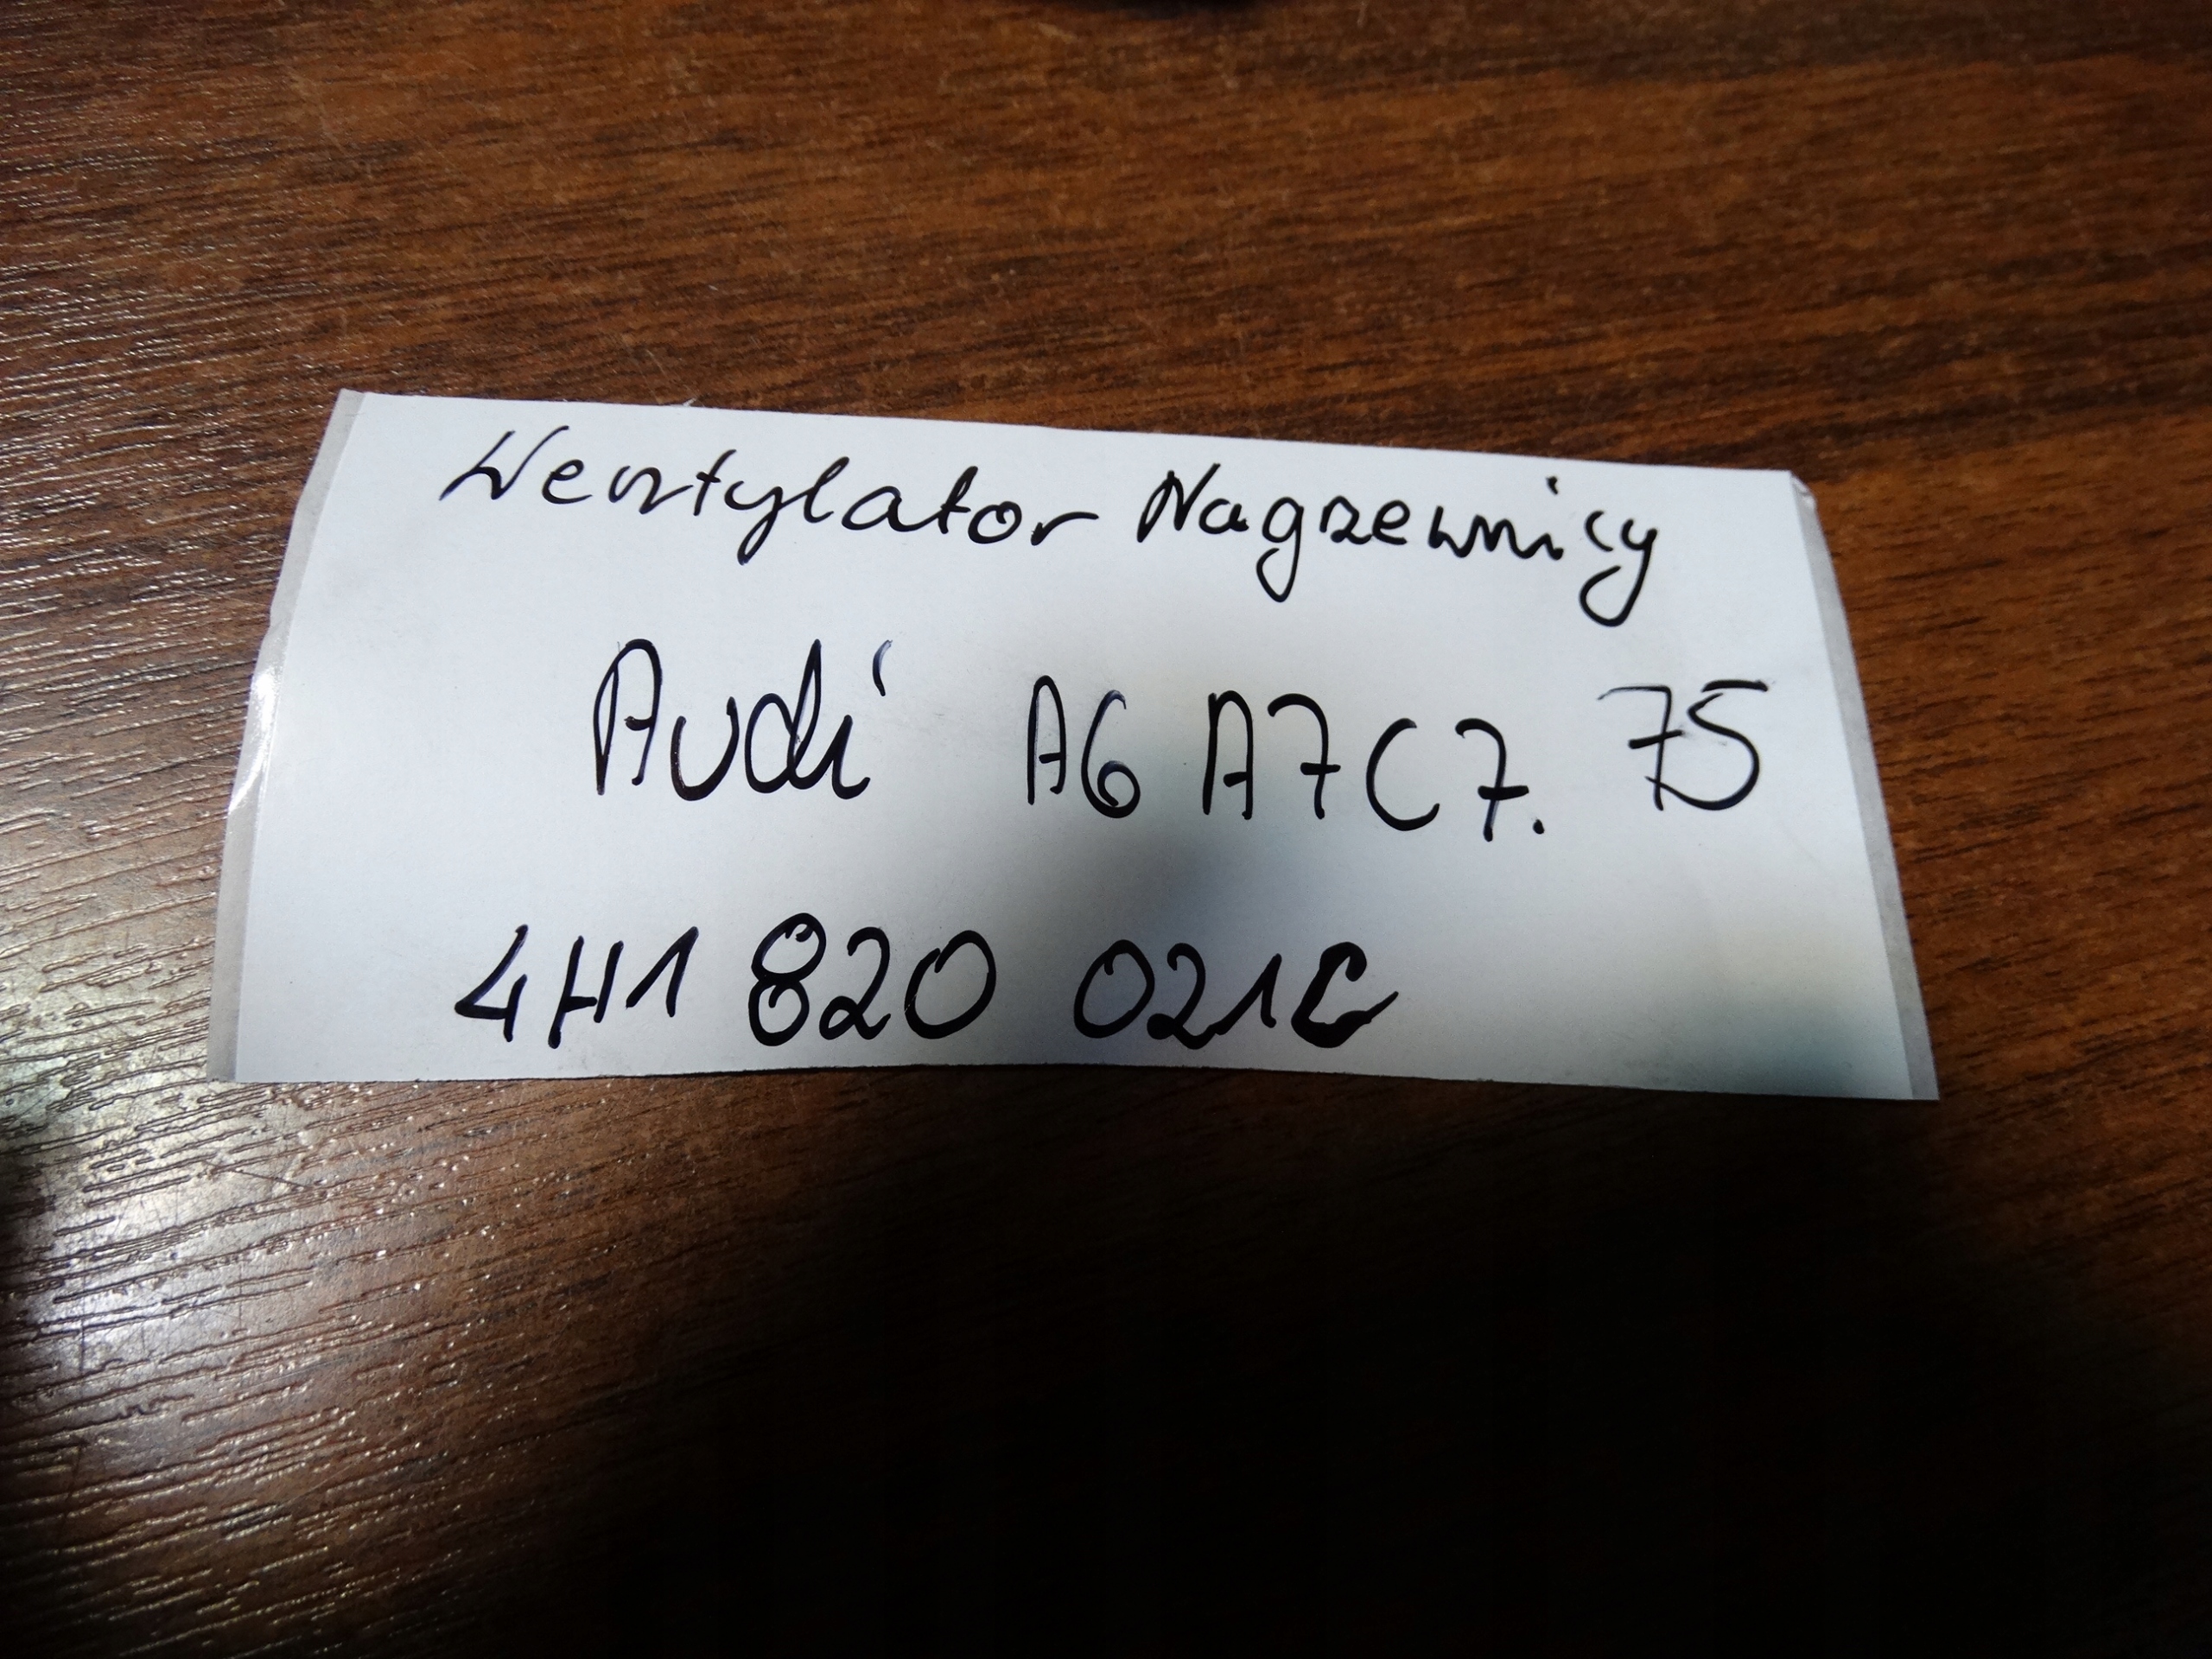 Wentylator Nagrzewnicy
Audi A6 A7 C7. 75
4H1 820 021C